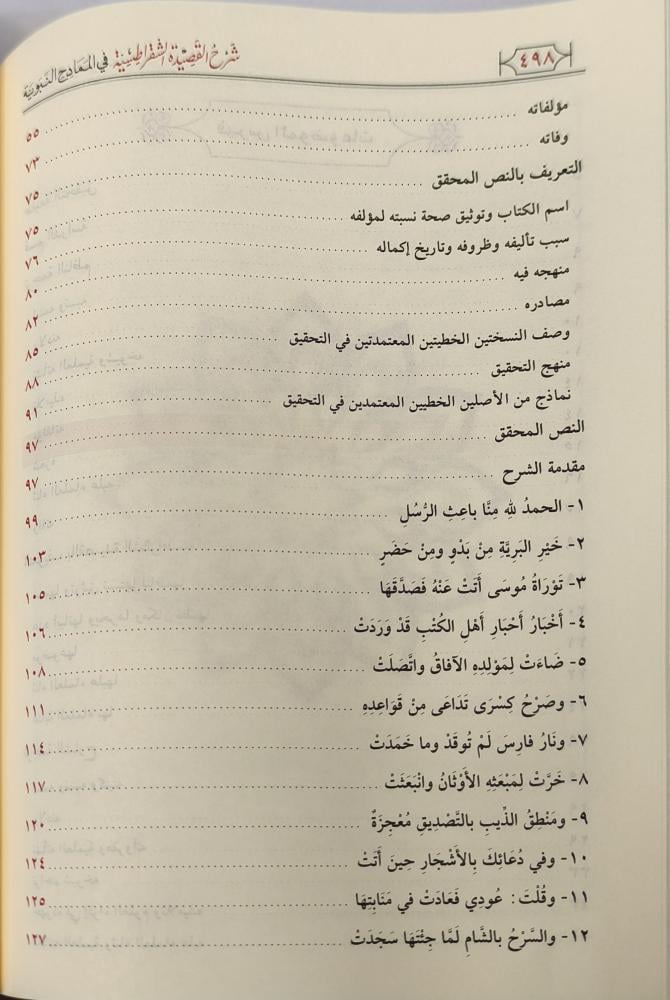 ٤٩٨
شَرْحُ القَصِيْدَةِ الشُّقْرَاطِسِيَّةِ في المَدَائِحِ النَّبَوِيَّة
مؤلفاته ٥٥
وفاته ٧٣
التعريف بالنص المحقق ٧٥
اسم الكتاب وتوثيق صحة نسبته لمؤلفه ٧٥
سبب تأليفه وظروفه وتاريخ إكماله ٧٦
منهجه فيه ٨٠
مصادره ٨٢
وصف النسختين الخطيتين المعتمدتين في التحقيق ٨٥
منهج التحقيق ٨٨
نماذج من الأصلين الخطيين المعتمدين في التحقيق ٩١
النص المحقق ٩٧
مقدمة الشرح ٩٧
١- الحمدُ للهِ مِنَّا باعِثِ الرُّسُلِ ٩٩
٢- خَيْرِ البَرِيَّةِ مِنْ بَدْوٍ ومِنْ حَضَرٍ ١٠٣
٣- تَوْرَاةُ مُوسَى أَتَتْ عَنْهُ فَصَدَّقَهَا ١٠٥
٤- أَخْبَارُ أَحْبَارِ أَهْلِ الكُتْبِ قَدْ وَرَدَتْ ١٠٦
٥- ضَاءَتْ لِمَوْلِدِهِ الآفاقُ واتَّصَلَتْ ١٠٨
٦- وصَرْحُ كِسْرَى تَدَاعَى مِنْ قَوَاعِدِهِ ١١١
٧- ونَارُ فارِسَ لَمْ تُوقَدْ وما خَمَدَتْ ١١٤
٨- خَرَّتْ لِمَبْعَثِهِ الأَوْثَانُ وانْبَعَثَتْ ١١٧
٩- ومَنْطِقُ الذِّيبِ بالتَّصْدِيقِ مُعْجِزَةٌ ١٢٠
١٠- وفي دُعَائِكَ بِالأَشْجَارِ حِينَ أَتَتْ ١٢٤
١١- وقُلْتَ: عُودِي فَعَادَتْ في مَنَابِتِهَا ١٢٥
١٢- والسَّرْحُ بالشَّامِ لَمَّا جِئْتَهَا سَجَدَتْ ١٢٧